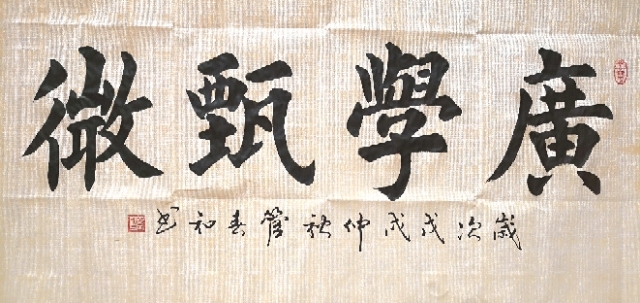 廣學甄微
歲次戊戌仲秋管春和书